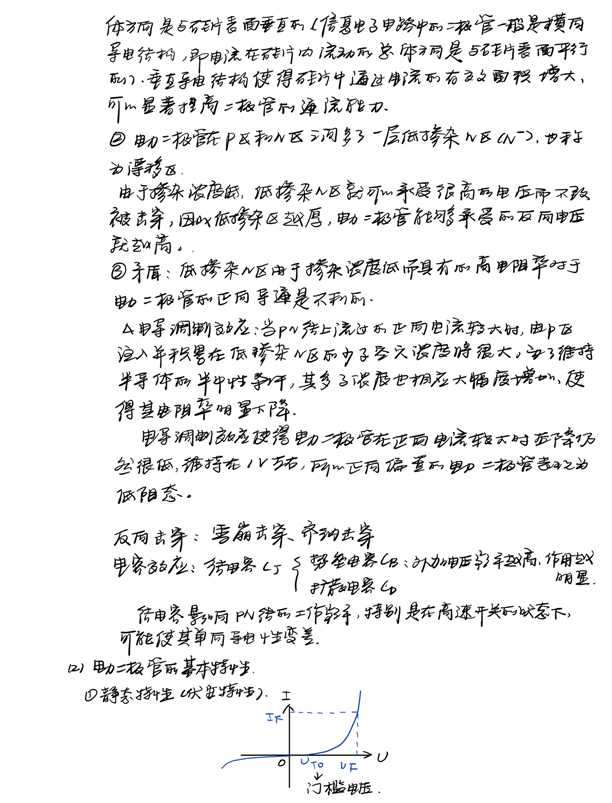 体方向是与硅片表面垂直的(信息电子电路中的二极管一般是横向
导电结构,即电流在硅片内流动的总体方向是与硅片表面平行
的)。垂直导电结构使得硅片中通过电流的有效面积增大,
可以显著提高二极管的通流能力.
② 电力二极管在P区和N区之间多了一层低掺杂N区(N⁻),也称
为漂移区.
由于掺杂浓度低,低掺杂N区就可以承受很高的电压而不致
被击穿,因此低掺杂区越厚,电力二极管能够承受的反向电压
就越高。
③ 矛盾:低掺杂N区由于掺杂浓度低而具有的高电阻率对于
电力二极管的正向导通是不利的.
△电导调制效应:当PN结上流过的正向电流较大时,由P区
注入并积累在低掺杂N区的少子空穴浓度将很大,为了维持
半导体的电中性条件,其多子浓度也相应大幅度增加,使
得其电阻率明显下降.
电导调制效应使得电力二极管在正向电流较大时压降仍
然很低,维持在1V左右,所以正向偏置的电力二极管表现为
低阻态。
反向击穿:雪崩击穿、齐纳击穿
电容效应:结电容CJ { 势垒电容CB:外加电压频率越高,作用越
明显.
扩散电容CD
结电容影响PN结的工作频率,特别是在高速开关的状态下,
可能使其单向导电性变差.
(2) 电力二极管的基本特性.
①静态特性(伏安特性).
I
IF
O
UTO
UF
U
门槛电压.